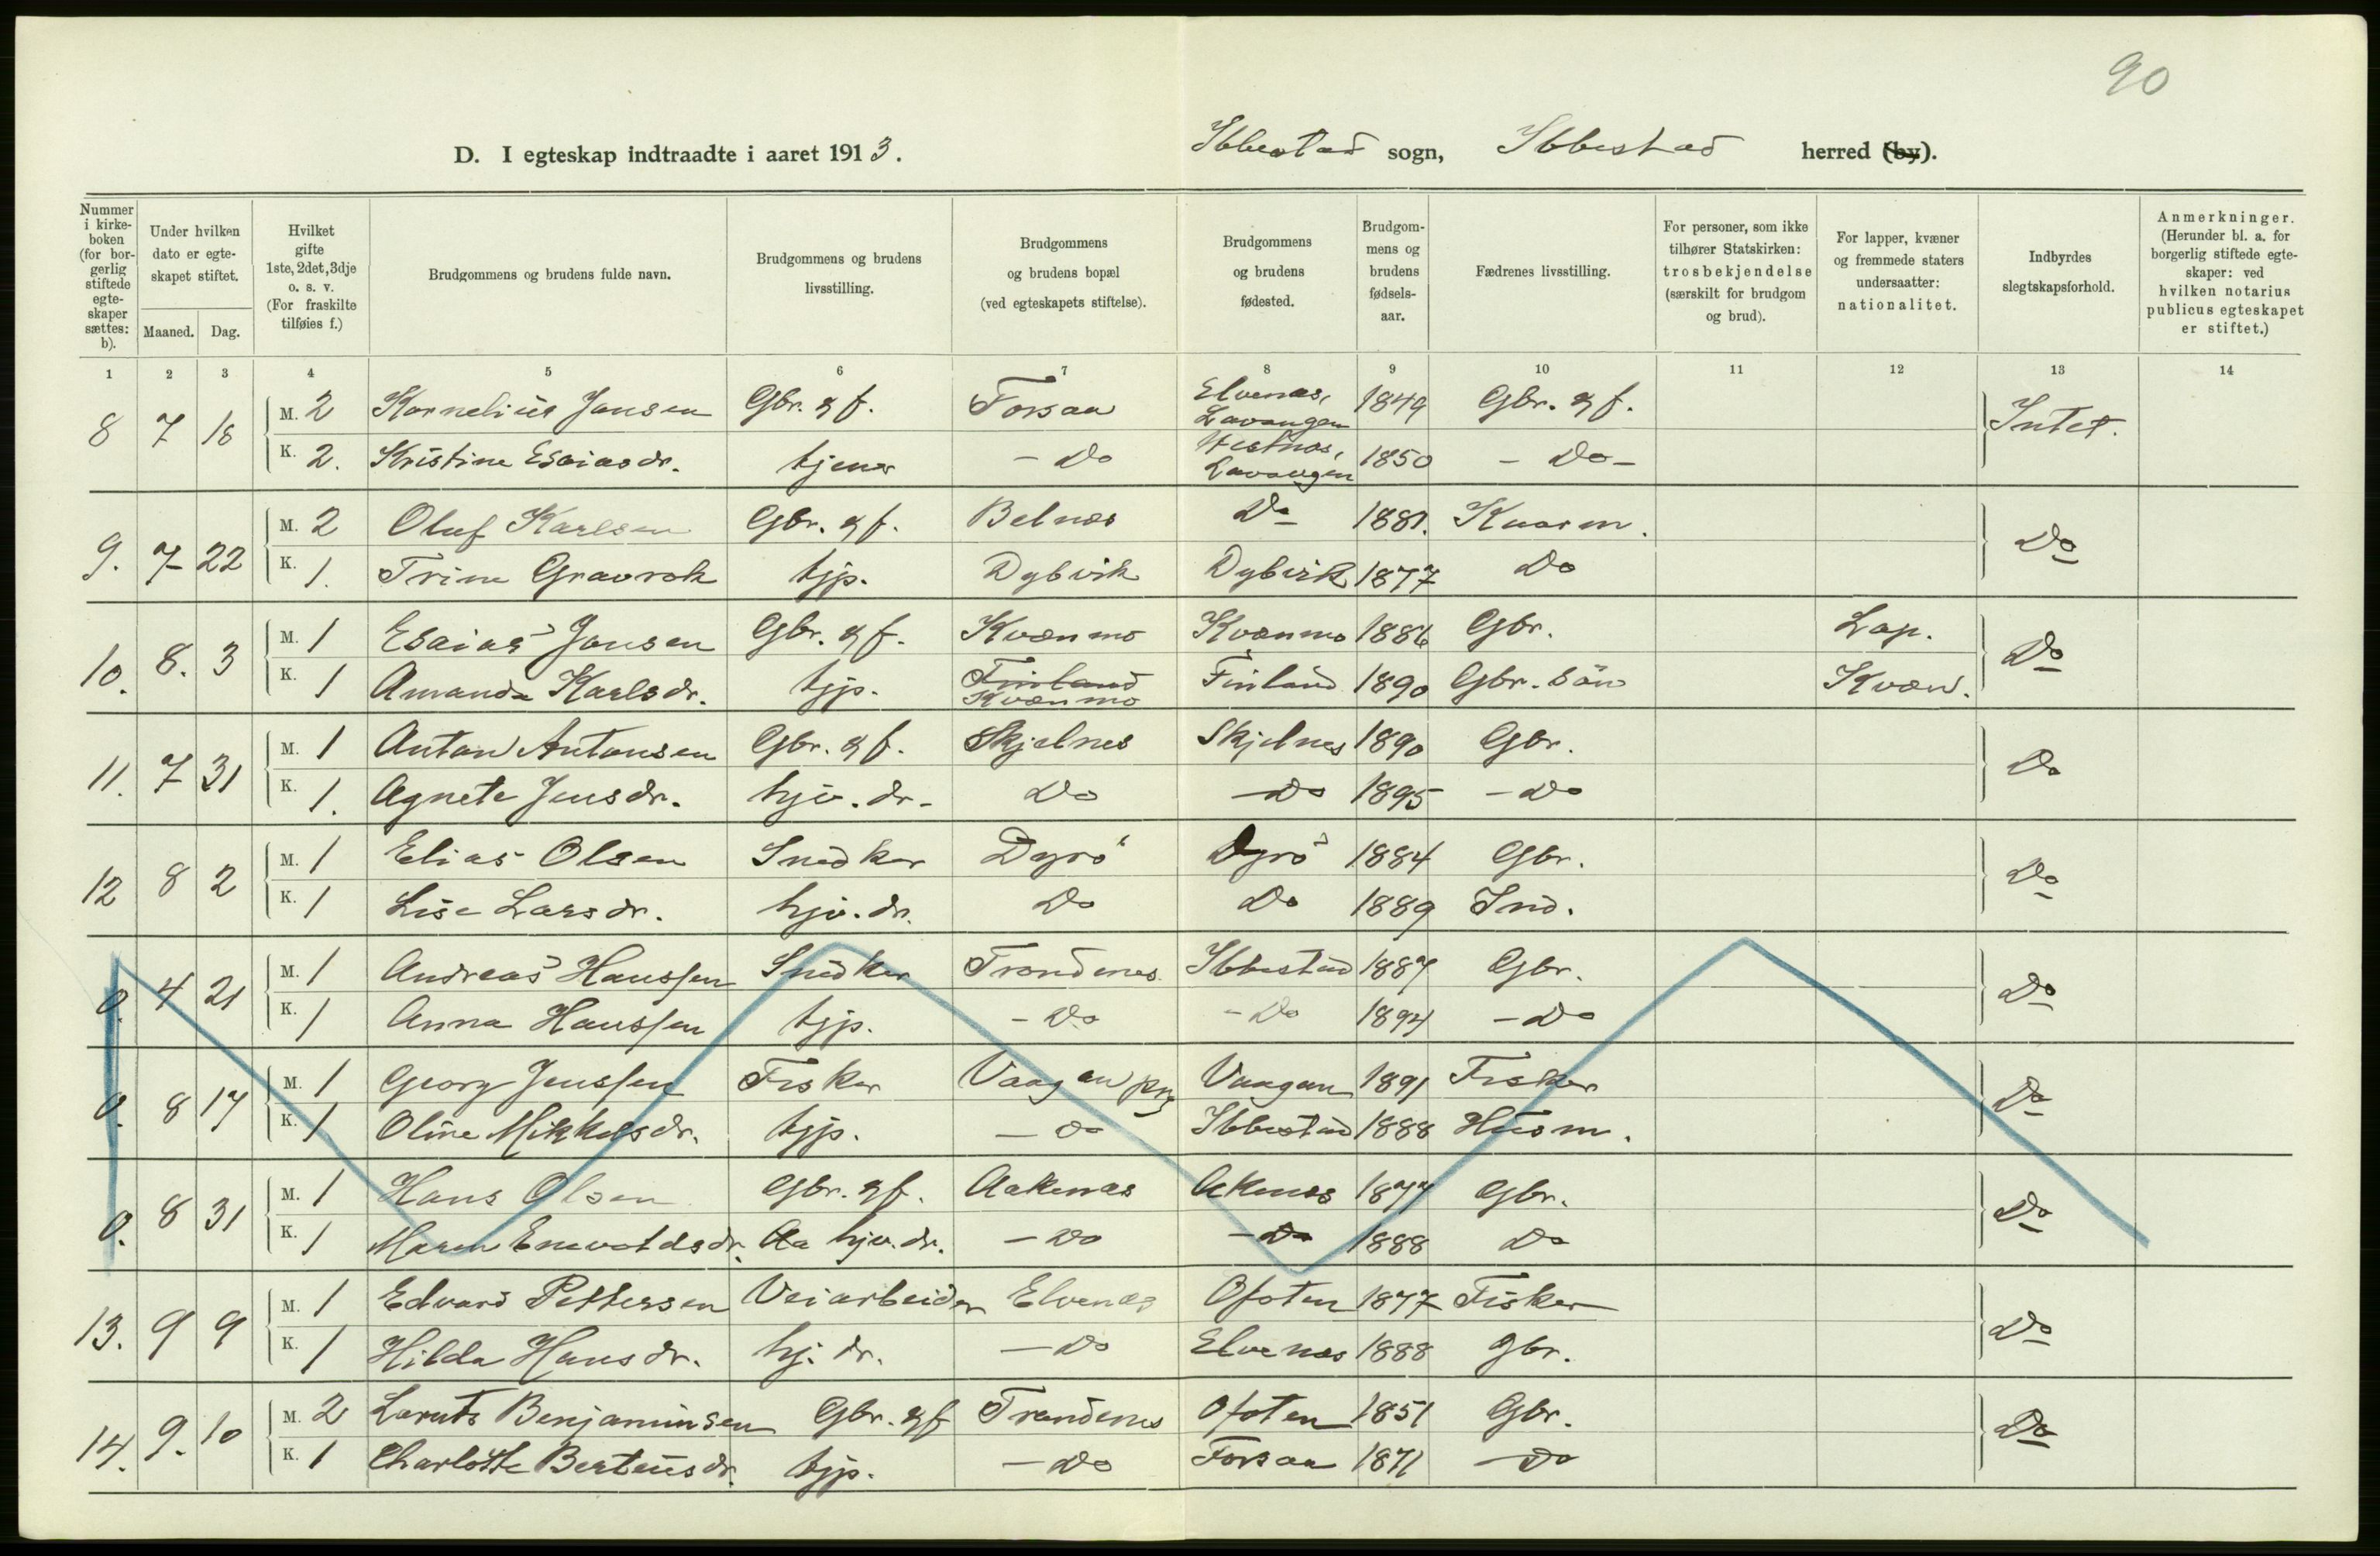 90
D. I egteskap indtraadte i aaret 1913.
Ibbestad sogn, Ibbestad herred (by).
Nummer i kirke-boken (for bor-gerlig stiftede egte-skaper sættes: b).
Under hvilken dato er egte-skapet stiftet.
Maaned. Dag.
Hvilket gifte 1ste, 2det, 3dje o. s. v. (For fraskilte tilføies f.)
Brudgommens og brudens fulde navn.
Brudgommens og brudens livsstilling.
Brudgommens og brudens bopæl (ved egteskapets stiftelse).
Brudgommens og brudens fødested.
Brudgom-mens og brudens fødsels-aar.
Fædrenes livsstilling.
For personer, som ikke tilhører Statskirken: trosbekjendelse (særskilt for brudgom og brud).
For lapper, kvæner og fremmede staters undersaatter: nationalitet.
Indbyrdes slegtskapsforhold.
Anmerkninger. (Herunder bl. a. for borgerlig stiftede egte-skaper: ved hvilken notarius publicus egteskapet er stiftet.)
1 2 3 4 5 6 7 8 9 10 11 12 13 14
8 7 18 M. 2 Kornelius Jensen Gbr. & f. Forsaa Elvenæs, Lavangen 1849 Gbr. & f. Intet.
K. 2. Kristine Esaiasdr. tjener - Do Lavangen 1850 - Do -
9. 7 22 M. 2 Oluf Karlsen Gbr. & f. Belnæs Do 1881. Do
K. 1. Trine Gravrok tjp. Dybvik Dybvik 1877 Do
10. 8. 3 M. 1 Esaias Jensen Gbr. & f. Kvænmo Kvænmo 1886 Gbr. Lap. Do
K. 1 Amanda Karlsdr. tjp. Finland Kvænmo Finland 1890 Gbr. Kvæn.
11. 7 31 M. 1 Anton Antonsen Gbr. & f. Skjelnes Skjelnes 1890 Gbr. Do
K. 1. Agnete Jensdr. hjv. dr. Do - Do 1895 - Do
12 8 2 M. 1 Elias Olsen Snedker Dyrö Dyrö 1884 Gbr. Do
K. 1 Lise Larsdr. hjv. dr. Do Do 1889 Ind.
0. 4 21 M. 1 Andreas Hanssen Snedker Trondenes Ibbestad 1887 Gbr. Do
K. 1 Anna Hanssen tjp. - Do - Do 1894 - Do
0. 8 17 M. 1 Georg Jenssen Fisker Vaagan prg Vaagan 1891 Fisker Do
K. 1 Oline Mikkelsdr. tjp. - Do Ibbestad 1888 Husm.
0. 8 31 M. 1 Hans Olsen Gbr. & f. Aakenæs Akenæs 1877 Gbr. Do
K. 1 Maren Enevoldsdr. hjv. dr. - Do - Do 1888 Do
13. 9 9 M. 1 Edvard Pettersen Veiarbeider Elvenæs Ofoten 1877 Fisker Do
K. 1 Hilda Hansdr. hj. dr. - Do Elvenæs 1888 gbr.
14. 9. 10 M. 2 Benjaminsen Gbr. & f Trondenes Ofoten 1851 Gbr. Do
K. 1 Charlotte Berteusdr. tjp. - Do Forsaa 1871 - Do